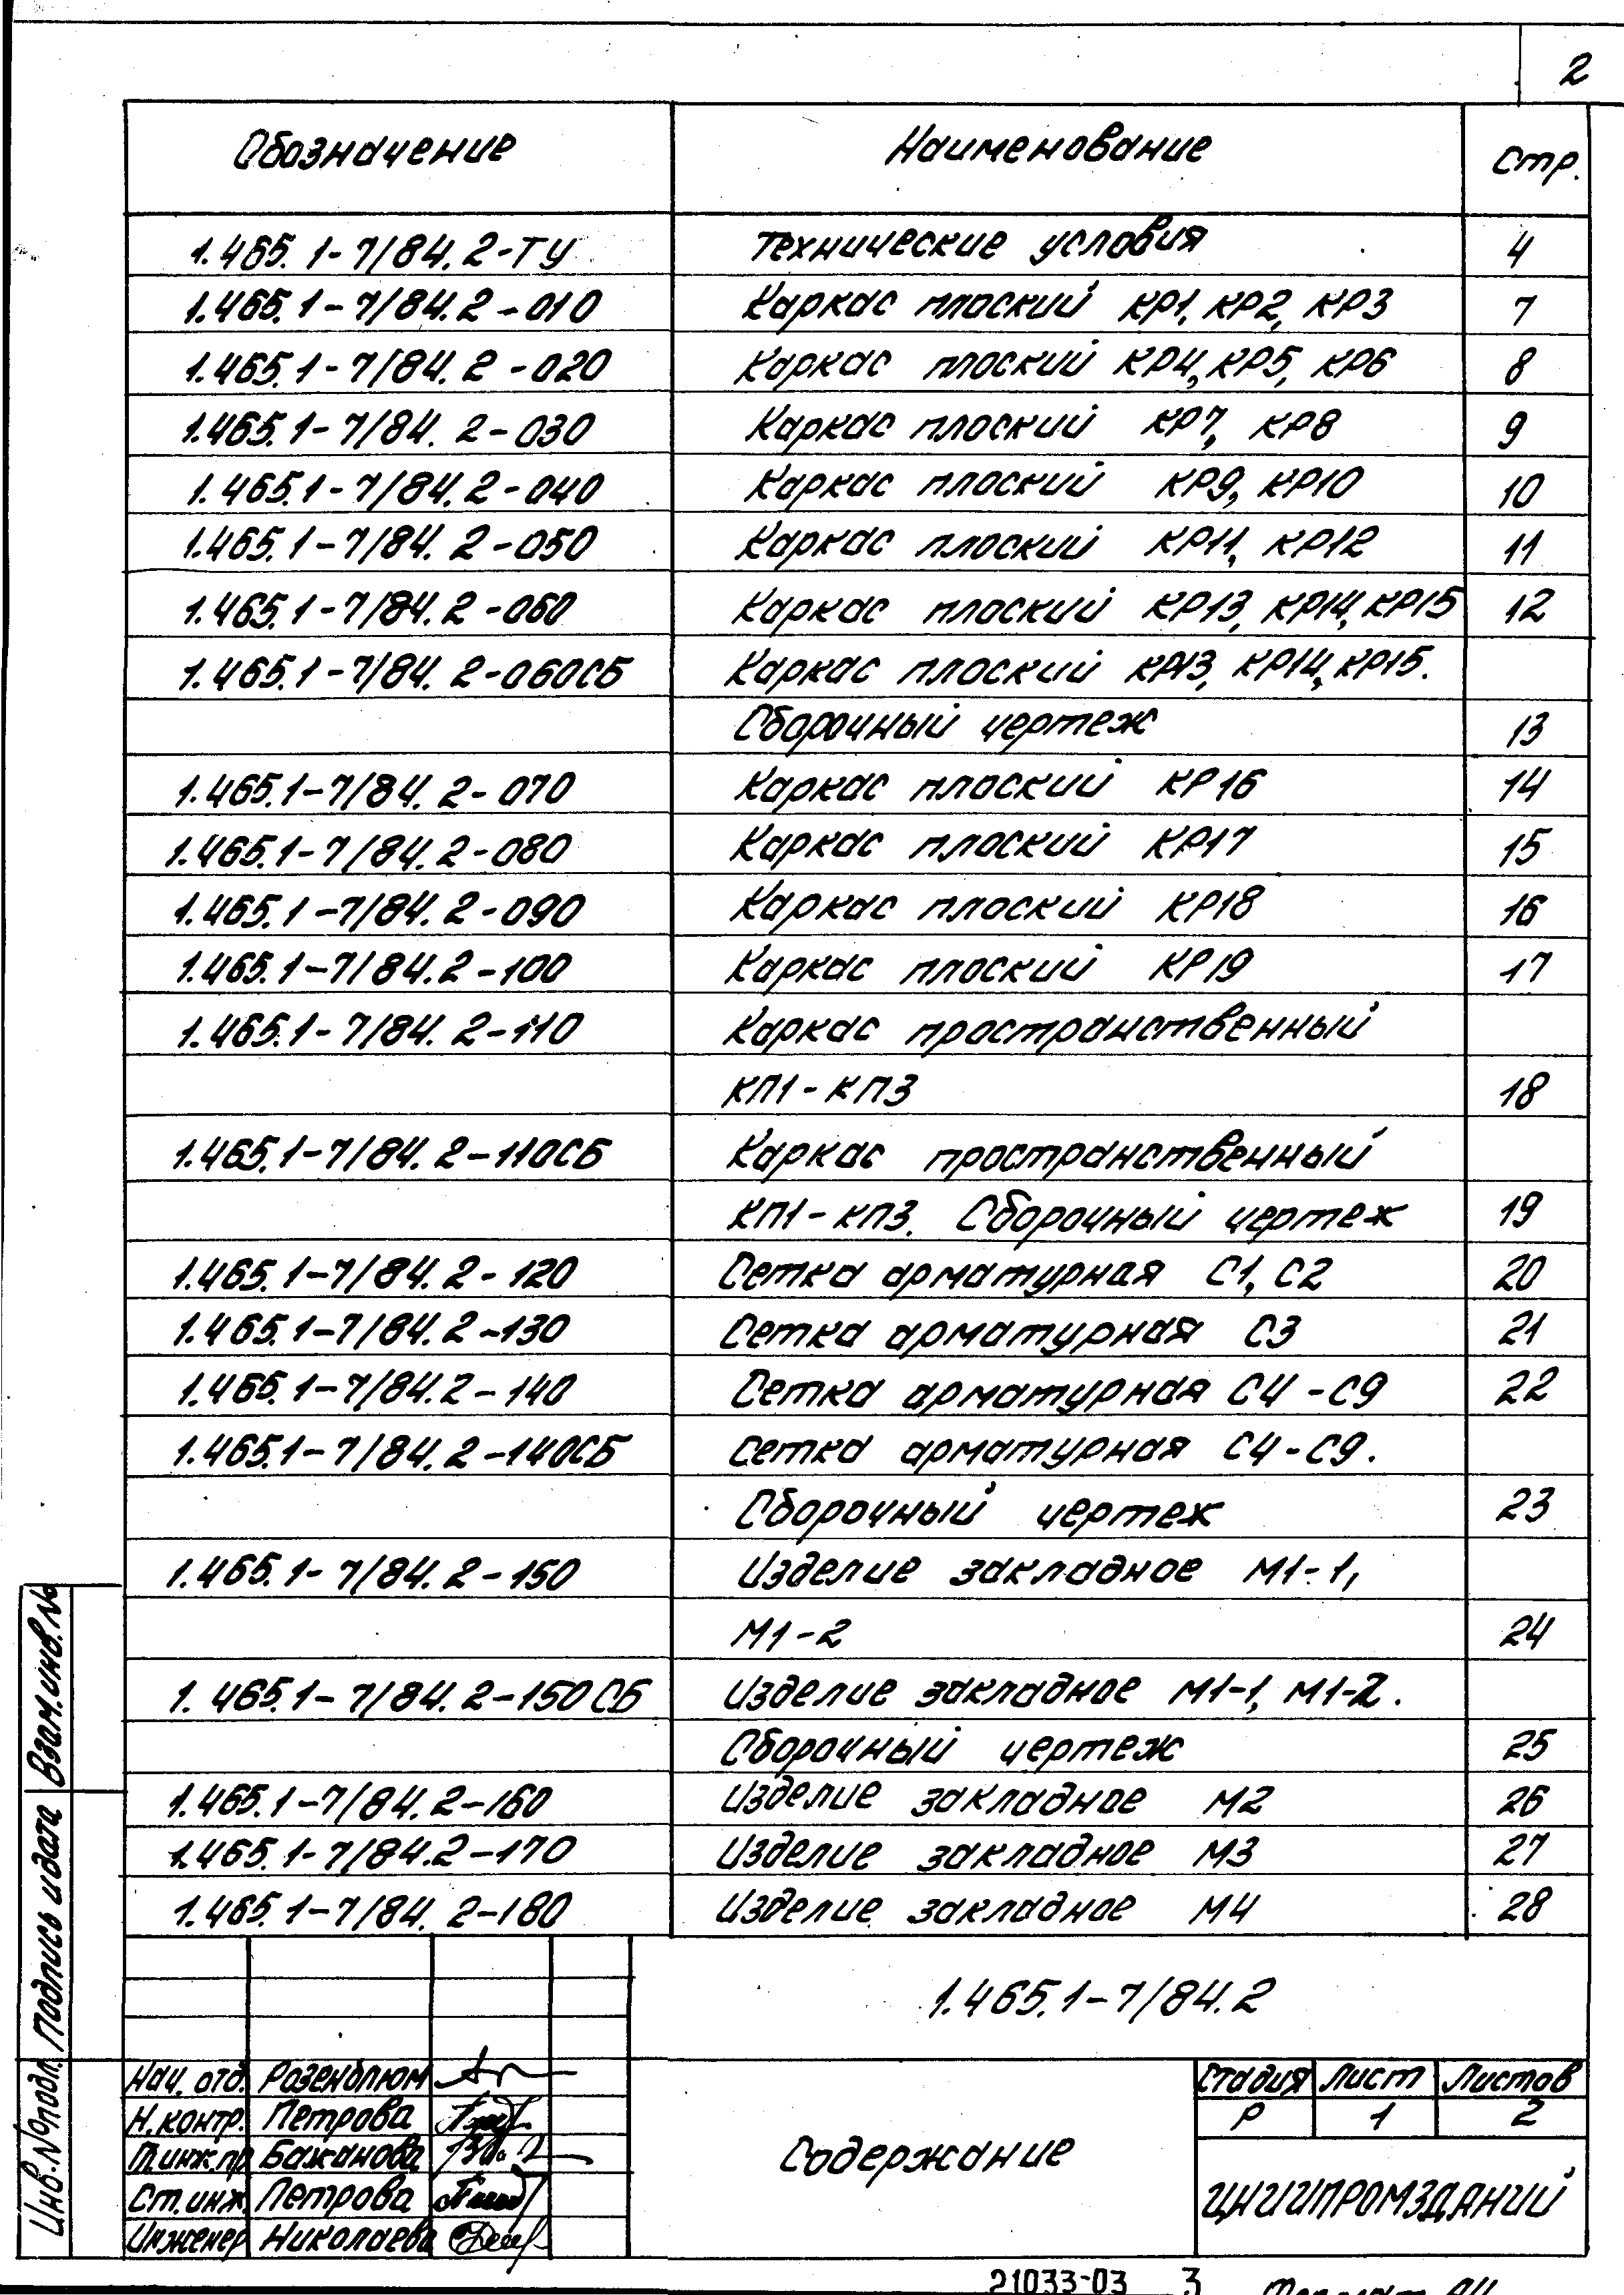 2
Обозначение Наименование Стр.
1.465.1-7/84.2-ТУ Технические условия 4
1.465.1-7/84.2-010 Каркас плоский КР1, КР2, КР3 7
1.465.1-7/84.2-020 Каркас плоский КР4, КР5, КР6 8
1.465.1-7/84.2-030 Каркас плоский КР7, КР8 9
1.465.1-7/84.2-040 Каркас плоский КР9, КР10 10
1.465.1-7/84.2-050 Каркас плоский КР11, КР12 11
1.465.1-7/84.2-060 Каркас плоский КР13, КР14, КР15 12
1.465.1-7/84.2-060СБ Каркас плоский КР13, КР14, КР15.
Сборочный чертеж 13
1.465.1-7/84.2-070 Каркас плоский КР16 14
1.465.1-7/84.2-080 Каркас плоский КР17 15
1.465.1-7/84.2-090 Каркас плоский КР18 16
1.465.1-7/84.2-100 Каркас плоский КР19 17
1.465.1-7/84.2-110 Каркас пространственный
КП1-КП3 18
1.465.1-7/84.2-110СБ Каркас пространственный
КП1-КП3. Сборочный чертеж 19
1.465.1-7/84.2-120 Сетка арматурная С1, С2 20
1.465.1-7/84.2-130 Сетка арматурная С3 21
1.465.1-7/84.2-140 Сетка арматурная С4-С9 22
1.465.1-7/84.2-140СБ Сетка арматурная С4-С9.
Сборочный чертеж 23
1.465.1-7/84.2-150 Изделие закладное М1-1,
М1-2 24
1.465.1-7/84.2-150СБ Изделие закладное М1-1, М1-2.
Сборочный чертеж 25
1.465.1-7/84.2-160 Изделие закладное М2 26
1.465.1-7/84.2-170 Изделие закладное М3 27
1.465.1-7/84.2-180 Изделие закладное М4 28
1.465.1-7/84.2
Нач. отд. Розенблюм
Н.контр. Петрова
Гл.инж.пр. Бажанова
Ст.инж. Петрова
Инженер Николаева
Содержание
Стадия Лист Листов
Р 1 2
ЦНИИПРОМЗДАНИЙ
Взам.инв.№
Подпись и дата
Инв.№подл.
21033-03 3 Формат А4